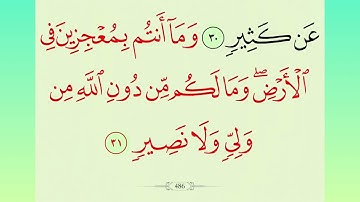 عَن كَثِيرٍ ٣٠ وَمَآ أَنتُم بِمُعْجِزِينَ فِي
ٱلْأَرْضِۖ وَمَا لَكُم مِّن دُونِ ٱللَّهِ مِن
وَلِيٍّ وَلَا نَصِيرٍ ٣١
486